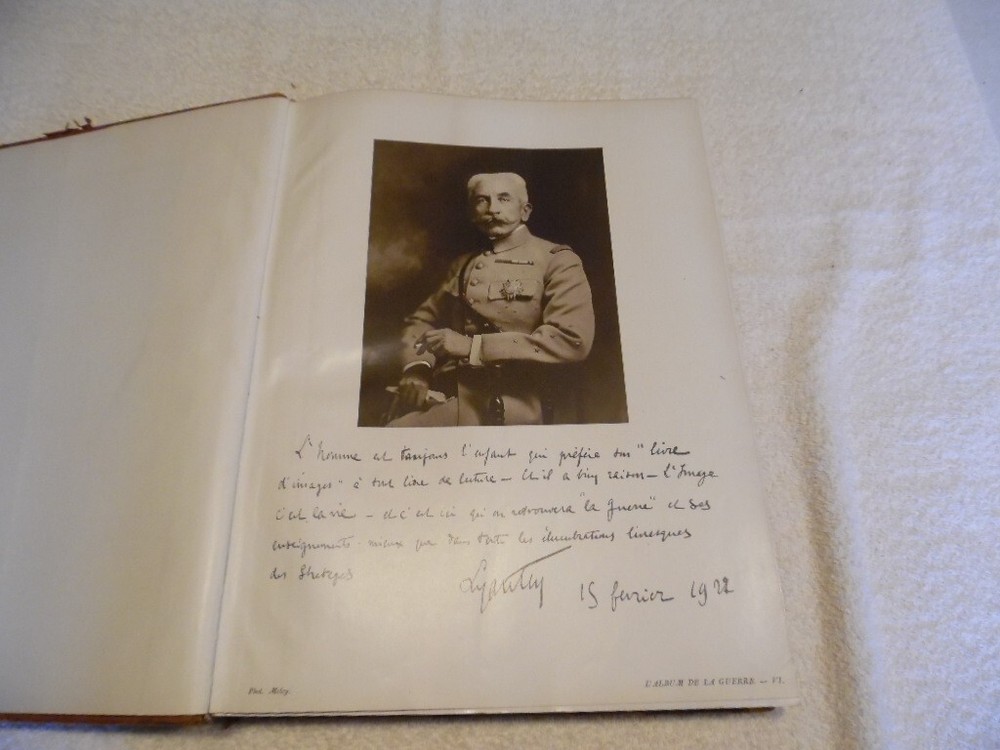 L'homme est toujours l'enfant qui préfère son "livre
d'images" à son livre de lecture — Et il a bien raison — L'Image
c'est la vie — et c'est ici qu'on retrouvera "la Guerre" et ses
enseignements mieux que dans toutes les élucubrations livresques
des Stratèges
Lyautey 15 février 1922
Phot. Melcy.
L'ALBUM DE LA GUERRE. — VI.